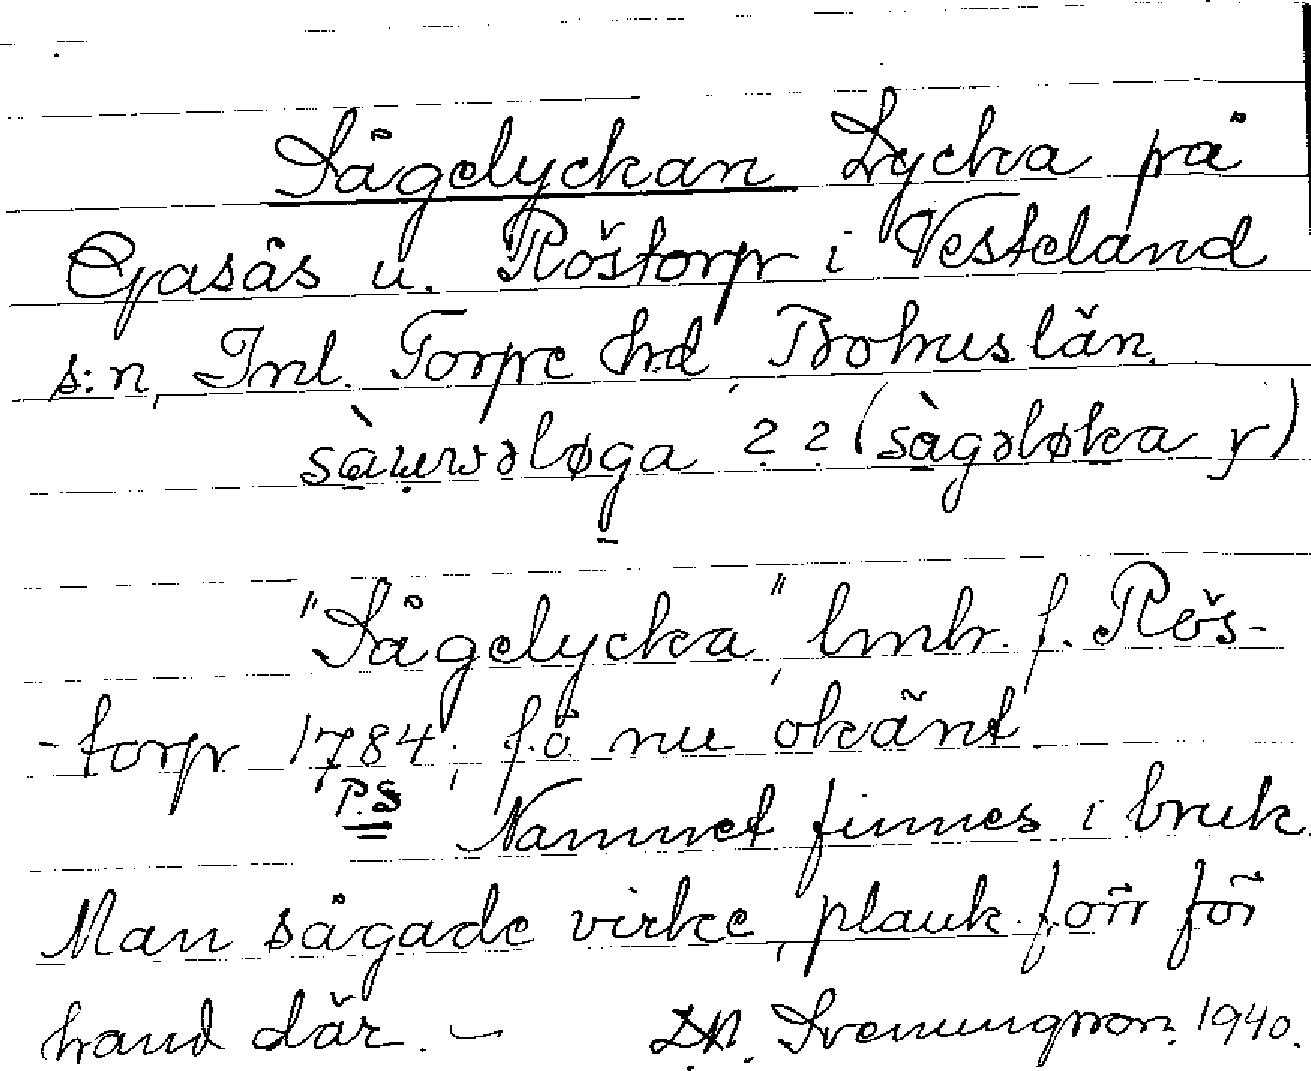 Sågelyckan Lycka på
Gasås u. Röstorp i Vesteland
s:n, Inl. Torpe hd, Bohuslän.
22 (
"Sågelycka", lmtr. f. Rös-
-torp 1784; f.ö. nu okänt.
P.S
Namnet finnes i bruk.
Man sågade virke, plank förr för
hand där. – D.A. Svenungsson. 1940.